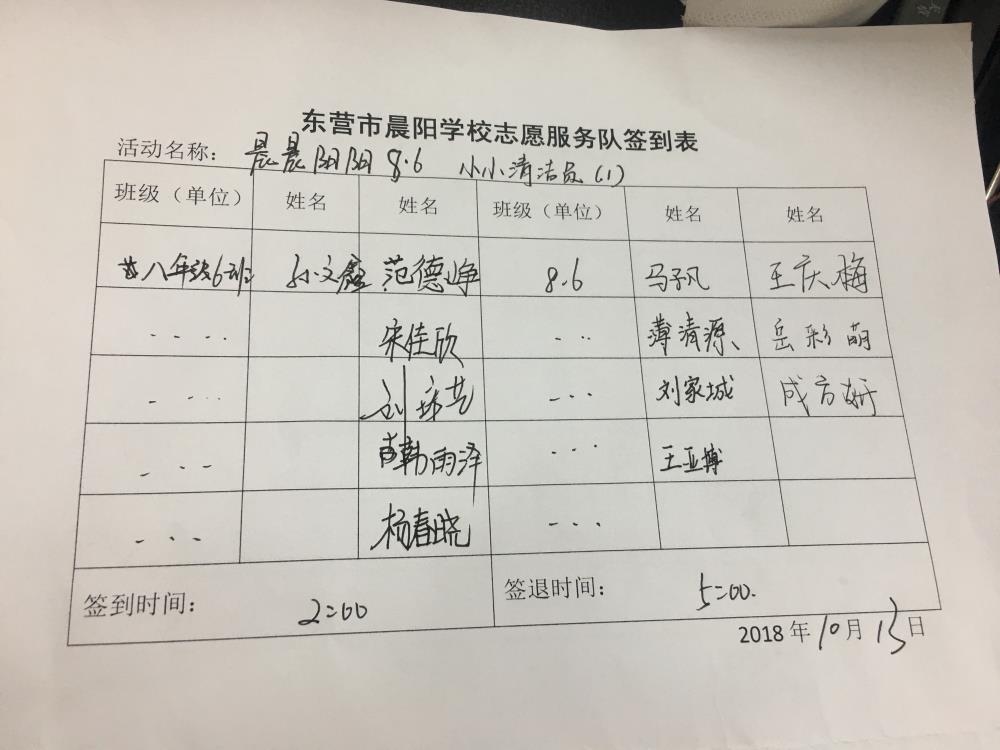 东营市晨阳学校志愿服务队签到表
活动名称: 晨晨阳阳 8.6 小小清洁员(1)
班级(单位) 姓名 姓名 班级(单位) 姓名 姓名
八年级6班 孙文鑫 范德峥 8.6 马子凡 王庆梅
.... 宋佳欣 ... 薄清源、 岳彩萌
.... 刘 艺 ... 刘家城 成方妍
... 韩雨泽 ... 王亚博
... 杨春晓 ...
签到时间: 2:00 签退时间: 5:00.
2018年10月13日